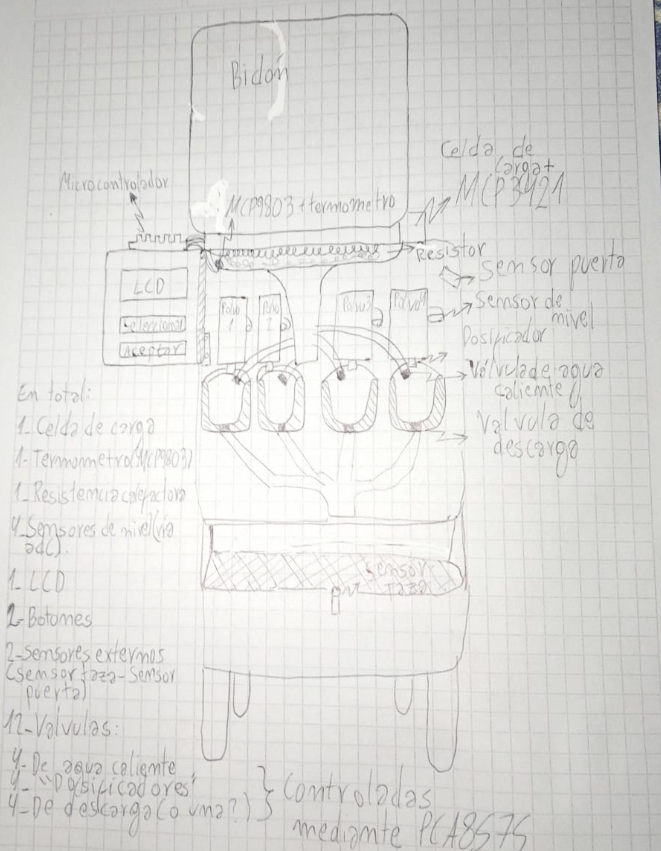 Bidón
Celda de
carga +
MCP3421
Microcontrolador
MCP9803 + termometro
Resistor
Sensor puerta
LCD
Seleccionar
Aceptar
Polvo
1
Polvo
2
Polvo3
Polvo4
Sensor de
nivel
Dosificador
Válvula de agua
caliente
Valvula de
descarga
En total:
1-Celda de carga
1-Termometro(MCP9803)
1-Resistencia calefactora
4-Sensores de nivel(via
adc).
1-LCD
2-Botones
2-Sensores externos
(sensor taza-Sensor
puerta)
12-Valvulas:
4-De agua caliente
4-"Dosificadores"
4-De descarga(o una?)
Controladas
mediante PCA8575
Sensor
Taza